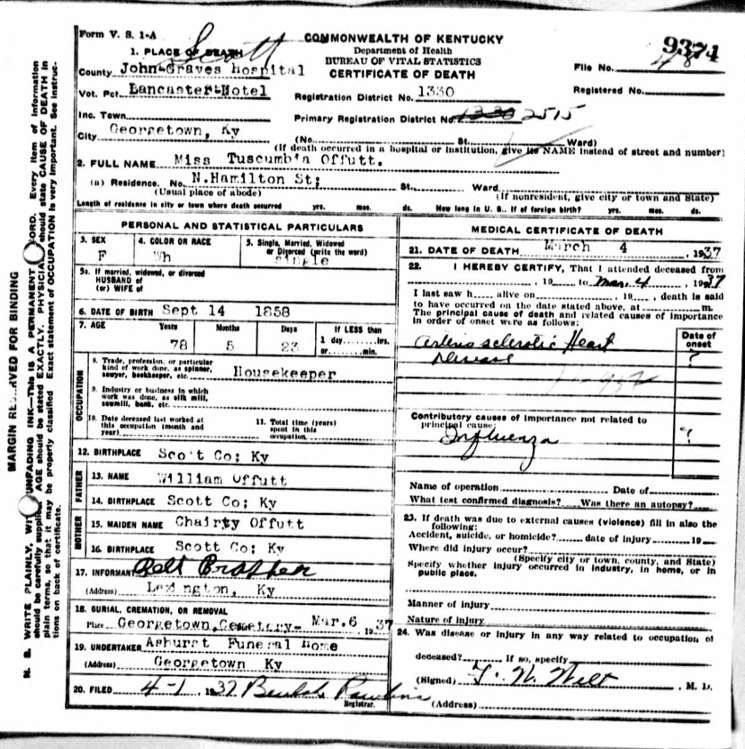 Form V. S. 1-A
COMMONWEALTH OF KENTUCKY
Department of Health
BUREAU OF VITAL STATISTICS
CERTIFICATE OF DEATH
9374
File No.
Registered No.
1. PLACE OF DEATH Scott
County John Graves Hospital
Vot. Pct. Lancaster Hotel
Registration District No. 1330
Inc. Town
Primary Registration District No. 1330 2515
City Georgetown, Ky
(No. St. Ward)
(If death occurred in a hospital or institution, give its NAME instead of street and number)
2. FULL NAME Miss Tuscumbia Offutt.
(a) Residence. No. N.Hamilton St; St. Ward
(Usual place of abode) (If nonresident, give city or town and State)
Length of residence in city or town where death occurred yrs. mos. ds. How long in U. S. If of foreign birth? yrs. mos. ds.
PERSONAL AND STATISTICAL PARTICULARS
3. SEX
F
4. COLOR OR RACE
Wh
5. Single, Married, Widowed
or Divorced (write the word)
Single
5a. If married, widowed, or divorced
HUSBAND of
(or) WIFE of
6. DATE OF BIRTH Sept 14 1858
7. AGE Years Months Days If LESS than
1 day hrs.
or min.
78 5 23
OCCUPATION
8. Trade, profession, or particular
kind of work done, as spinner,
sawyer, bookkeeper, etc. Housekeeper
9. Industry or business in which
work was done, as silk mill,
sawmill, bank, etc.
10. Date deceased last worked at
this occupation (month and
year)
11. Total time (years)
spent in this
occupation
12. BIRTHPLACE Scott Co; Ky
FATHER
13. NAME William Offutt
14. BIRTHPLACE Scott Co; Ky
MOTHER
15. MAIDEN NAME Chairty Offutt
16. BIRTHPLACE Scott Co; Ky
17. INFORMANT
(Address) Lexington, Ky
18. BURIAL, CREMATION, OR REMOVAL
Place Georgetown, Cemetery Mar.6 1937
19. UNDERTAKER Ashurst Funeral Home
(Address) Georgetown Ky
20. FILED 4-1 1937 Registrar.
MEDICAL CERTIFICATE OF DEATH
21. DATE OF DEATH March 4 , 1937
22. I HEREBY CERTIFY, That I attended deceased from
, 19 to Mar. 4, 1937
I last saw h alive on , 19 , death is said
to have occurred on the date stated above, at m.
The principal cause of death and related causes of importance
in order of onset were as follows:
Date of
onset
Arterio sclerotic Heart
Disease ?
Contributory causes of importance not related to
principal cause:
Influenza ?
Name of operation Date of
What test confirmed diagnosis? Was there an autopsy?
23. If death was due to external causes (violence) fill in also the
following:
Accident, suicide, or homicide? date of injury 19
Where did injury occur?
(Specify city or town, county, and State)
Specify whether injury occurred in industry, in home, or in
public place.
Manner of injury
Nature of injury
24. Was disease or injury in any way related to occupation of
deceased? If so, specify
(Signed) , M. D.
(Address)
MARGIN RESERVED FOR BINDING
N. B. WRITE PLAINLY, WITH UNFADING INK—THIS IS A PERMANENT RECORD. Every item of information
should be carefully supplied. AGE should be stated EXACTLY. PHYSICIANS should state CAUSE OF DEATH in
plain terms, so that it may be properly classified. Exact statement of OCCUPATION is very important. See instruc-
tions on back of certificate.